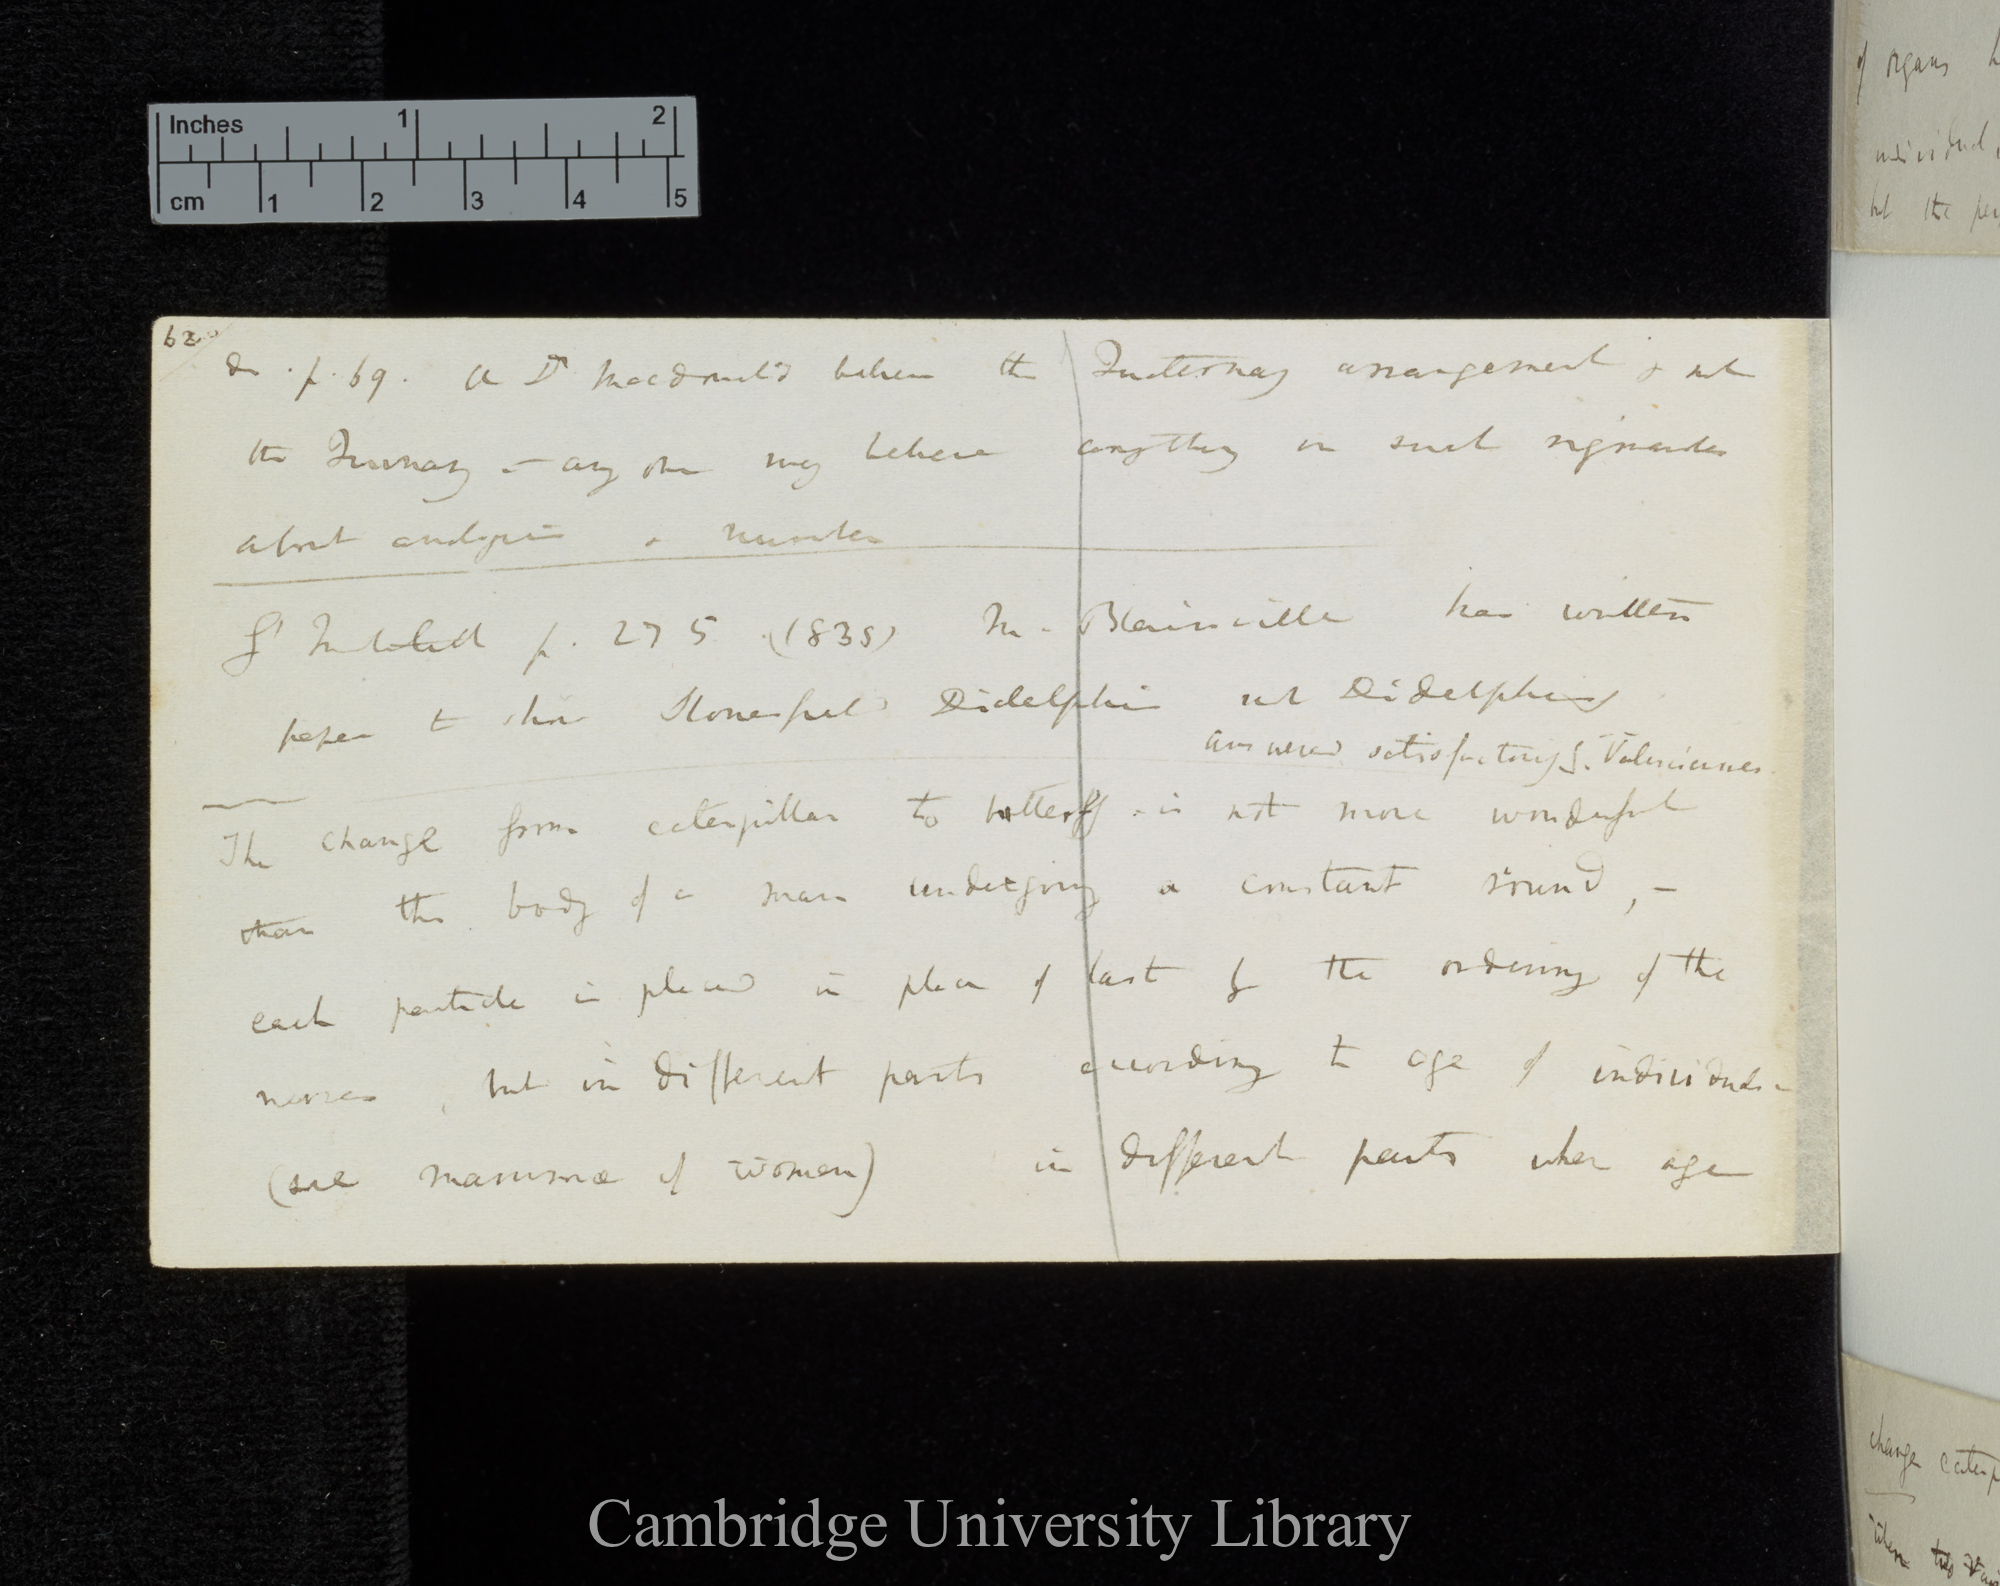 Inches 1 2
cm 1 2 3 4 5
62
do. p. 69. A Dr Macdonald believes the Quaternary arrangement & not
the Quinary – any one may believe anything in such rigmaroles
about analogies & numbers
L'Institut p. 275 (1838) M. Blainville has written
paper to show Stonesfield Didelphis not Didelphis
answered satisfactorily by Valenciennes
The change from caterpillar to butterfly – is not more wonderful
than the body of a man undergoing a constant round, –
each particle is placed in place of last by the ordering of the
nerves, but in different parts according to age of individual –
(see mammæ of women) in different parts when age
of organs
individual
but the
change
when two
Cambridge University Library